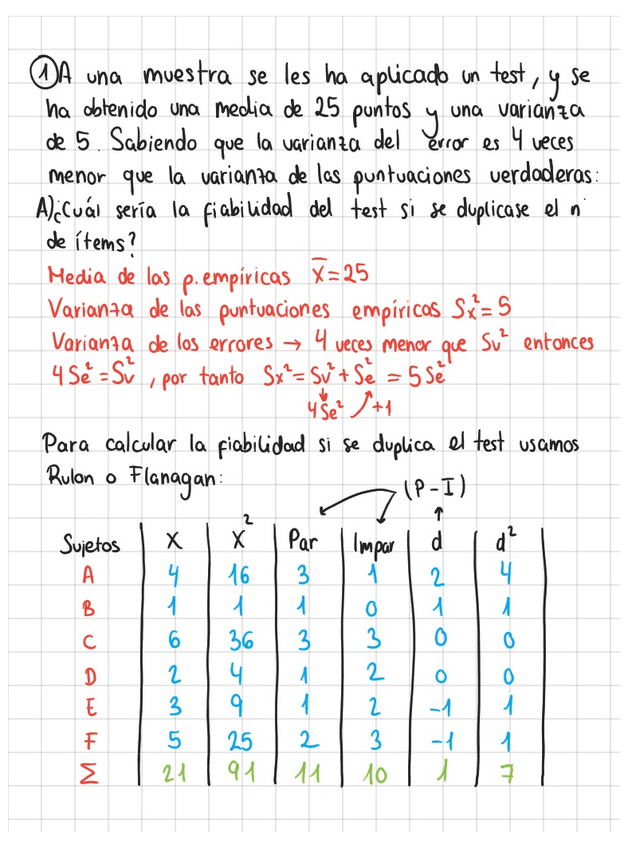 ① A una muestra se les ha aplicado un test, y se
ha obtenido una media de 25 puntos y una varianza
de 5. Sabiendo que la varianza del error es 4 veces
menor que la varianza de las puntuaciones verdaderas:
A) ¿Cuál sería la fiabilidad del test si se duplicase el nº
de ítems?
Media de las p. empíricas X̅=25
Varianza de las puntuaciones empíricas Sx²=5
Varianza de los errores → 4 veces menor que Sv² entonces
4Se²=Sv², por tanto Sx²=Sv²+Se²=5Se²
4Se² +1
Para calcular la fiabilidad si se duplica el test usamos
Rulon o Flanagan:
(P-I)
Sujetos X X² Par Impar d d²
A 4 16 3 1 2 4
B 1 1 1 0 1 1
C 6 36 3 3 0 0
D 2 4 1 2 0 0
E 3 9 1 2 -1 1
F 5 25 2 3 -1 1
Σ 21 91 11 10 1 7